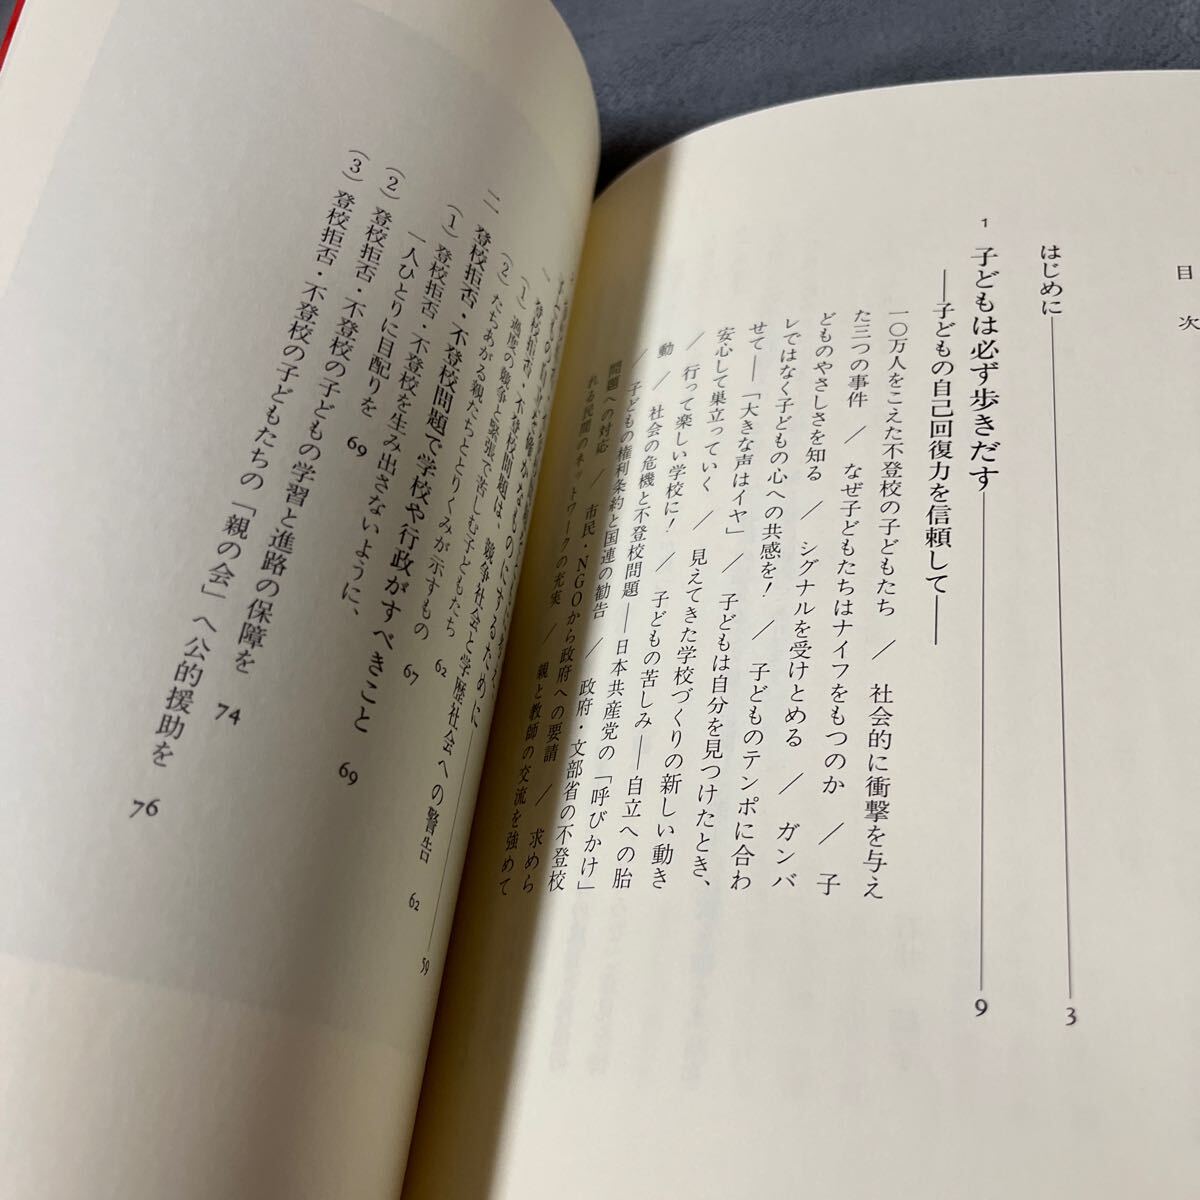 目次
はじめに 3
1 子どもは必ず歩きだす 9
――子どもの自己回復力を信頼して――
一〇万人をこえた不登校の子どもたち / 社会的に衝撃を与え
た三つの事件 / なぜ子どもたちはナイフをもつのか / 子
どものやさしさを知る / シグナルを受けとめる / ガンバ
レではなく子どもの心への共感を! / 子どものテンポに合わ
せて――「大きな声はイヤ」 / 子どもは自分を見つけたとき、
安心して巣立っていく / 見えてきた学校づくりの新しい動き
/ 行って楽しい学校に! / 子どもの苦しみ――自立への胎
動 / 社会の危機と不登校問題――日本共産党の「呼びかけ」
/ 子どもの権利条約と国連の勧告 / 政府・文部省の不登校
問題への対応 / 市民・NGOから政府への要請 / 求めら
れる民間のネットワークの充実 / 親と教師の交流を強めて
59
(1) 登校拒否・不登校問題は、競争社会と学歴社会への警告 62
過度の競争と緊張で苦しむ子どもたち 62
(2) たちあがる親たちととりくみが示すもの 67
二 登校拒否・不登校問題で学校や行政がすべきこと 69
(1) 登校拒否・不登校を生み出さないように、
一人ひとりに目配りを 69
(2) 登校拒否・不登校の子どもの学習と進路の保障を 74
(3) 登校拒否・不登校の子どもたちの「親の会」へ公的援助を 76